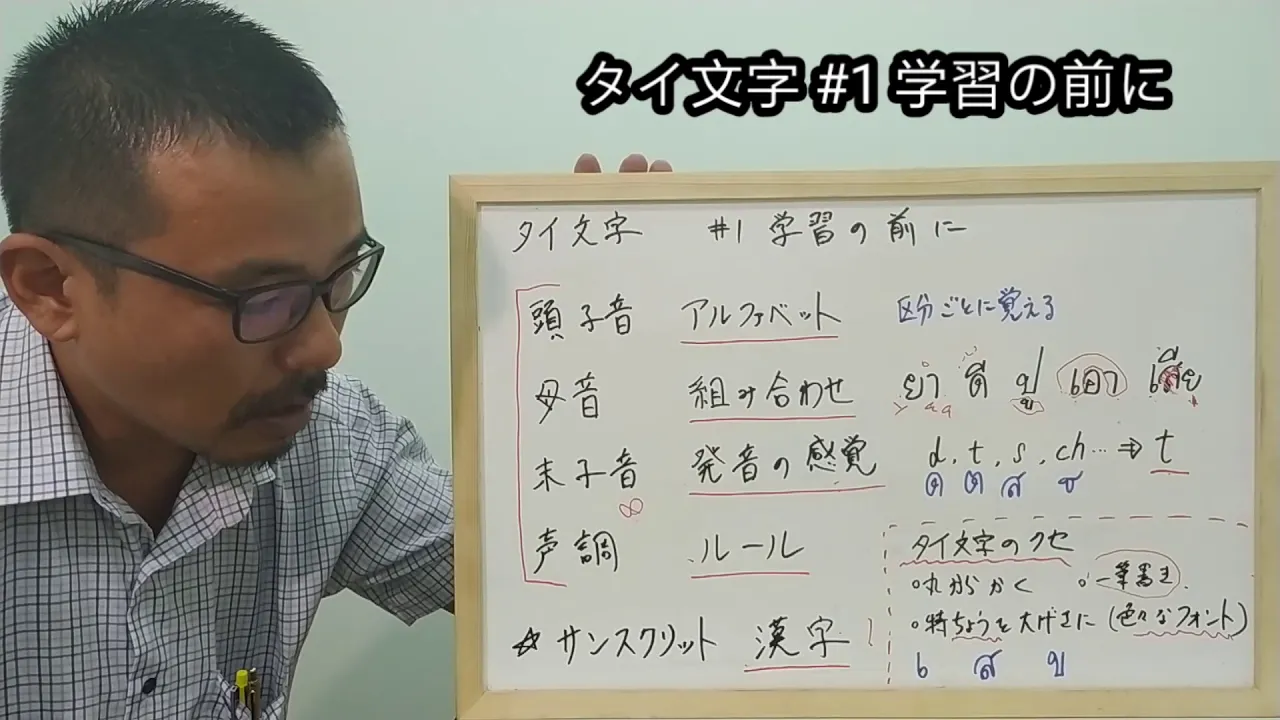 タイ文字 #1 学習の前に
タイ文字 #1 学習の前に
頭子音 アルファベット 区分ごとに覚える
母音 組み合わせ ยา ดี เอา
末子音 発音の感覚 d, t, s, ch… ⇒ t
ด ต ส ช
声調 ルール
☆ サンスクリット 漢字
タイ文字のクセ
○丸からかく ○一筆書き
○特ちょうを大げさに (色々なフォント)